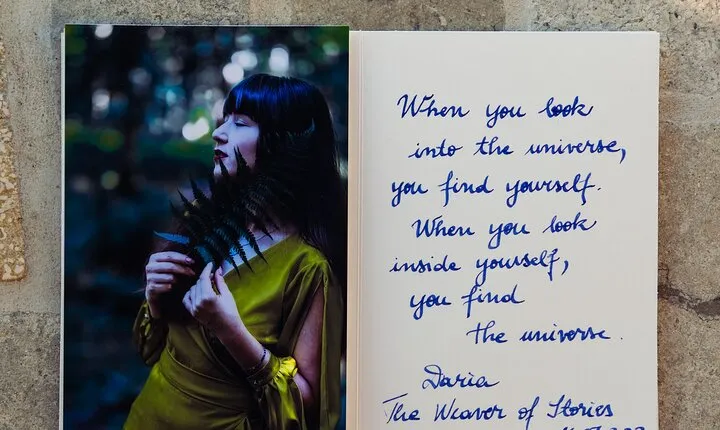 When you look
into the universe,
you find yourself.
When you look
inside yourself,
you find
the universe.
Daria
The Weaver of Stories